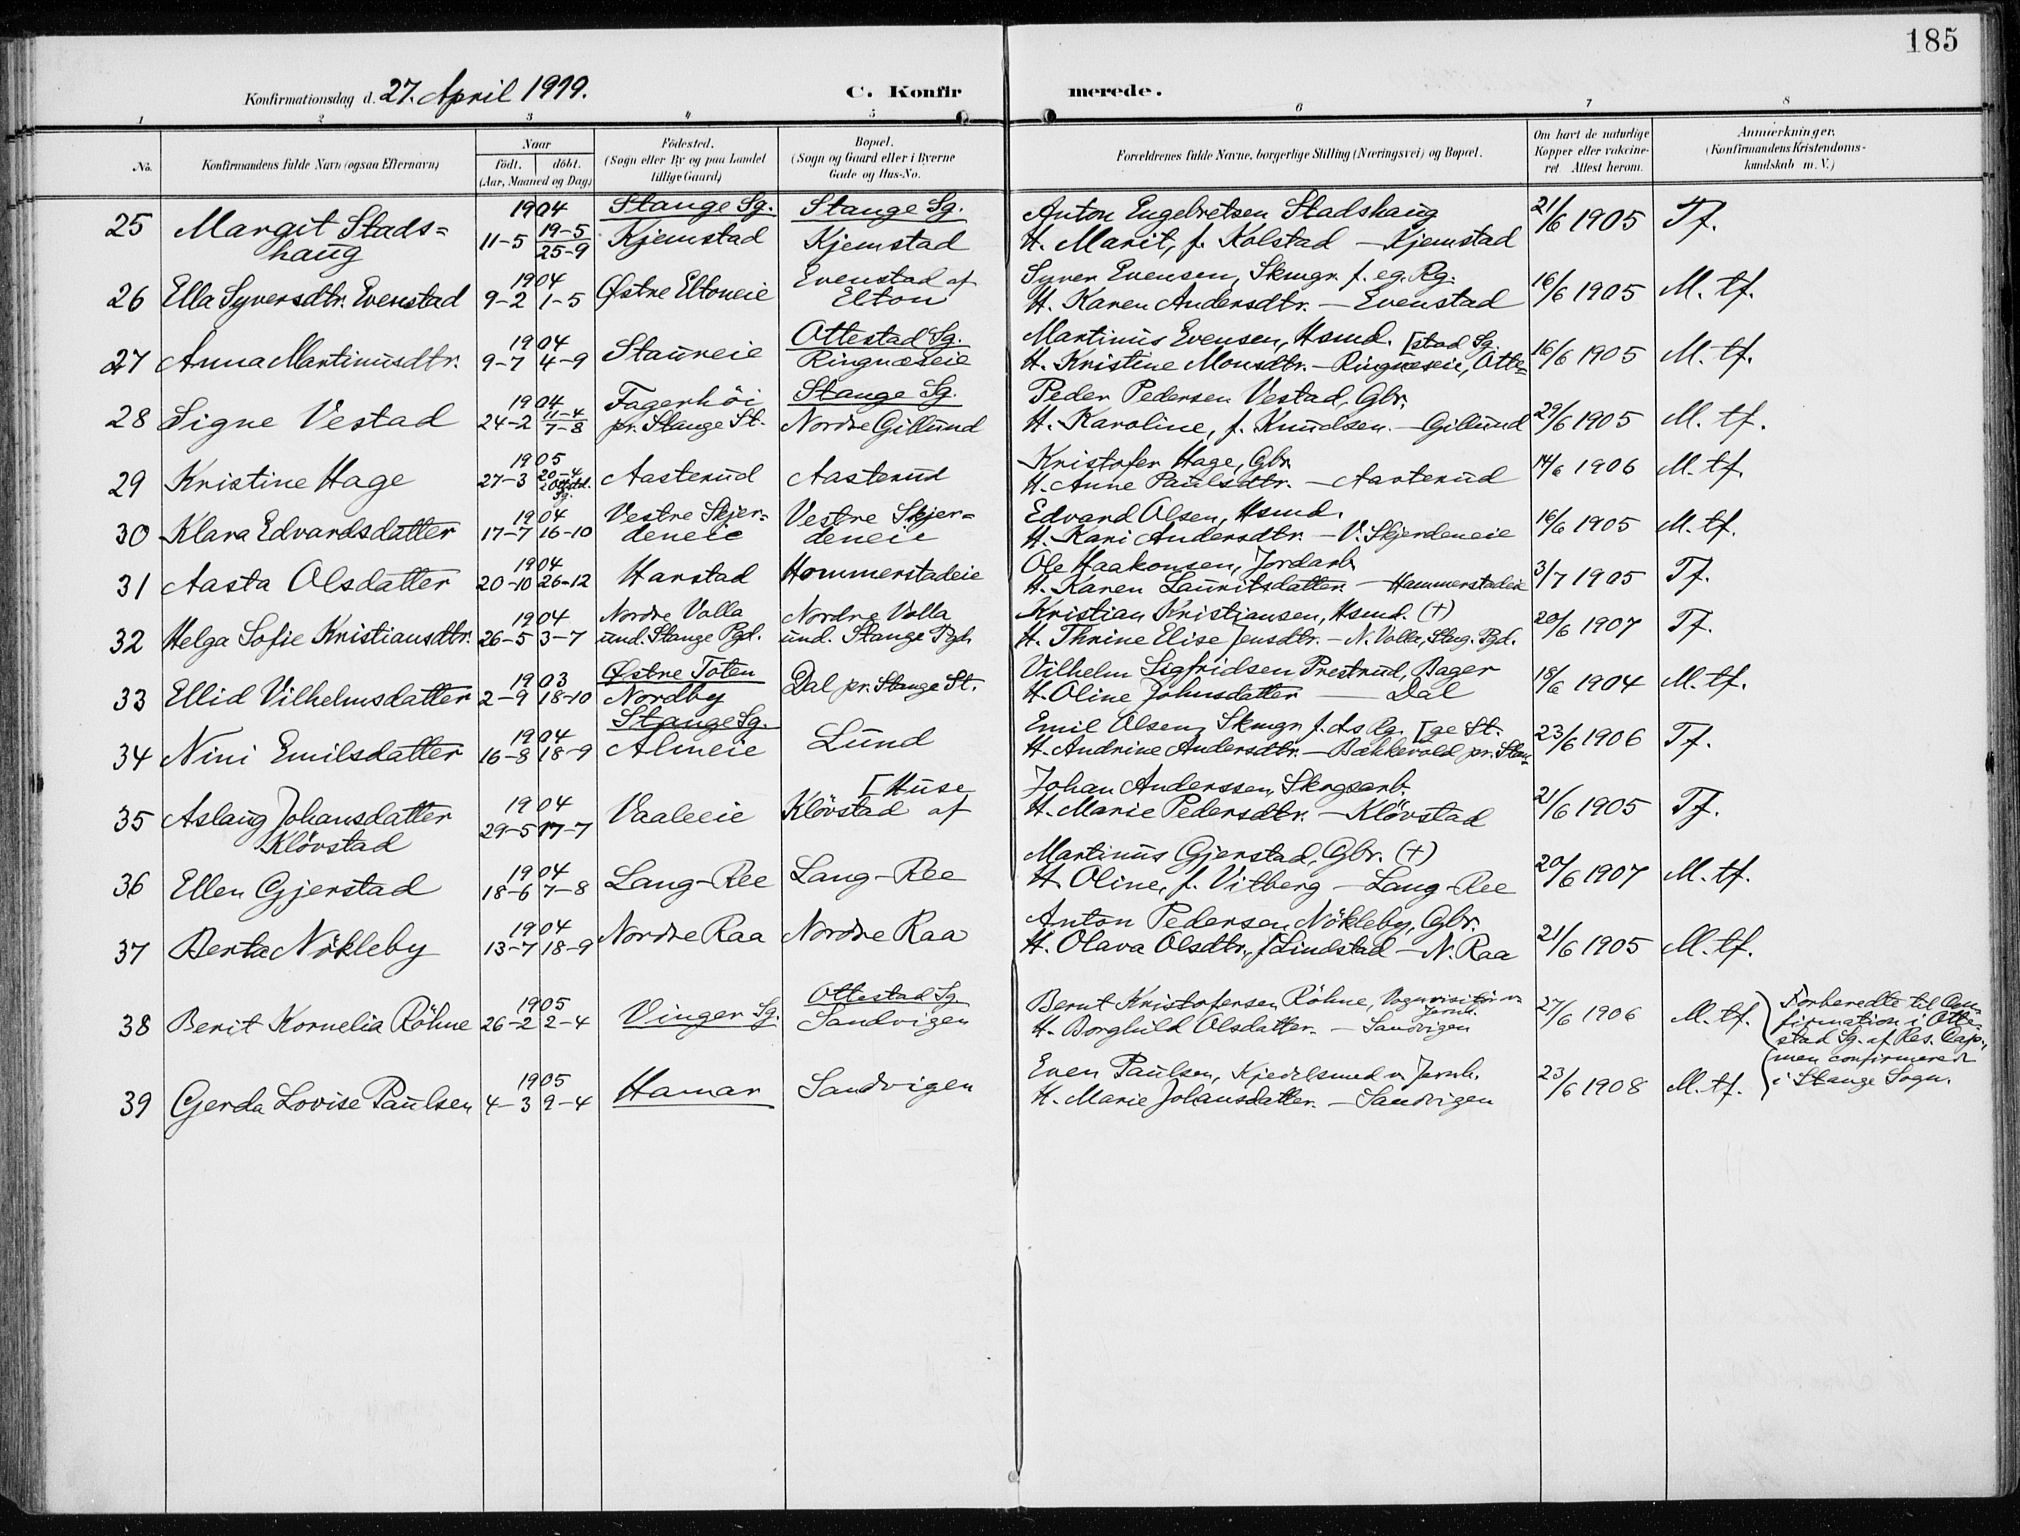 185
Konfirmationsdag d. 27. April 1919. C. Konfir merede.
1 2 3 4 5 6 7 8
No. Konfirmandens fulde Navn (ogsaa Efternavn) Naar Födt. döbt. (Aar, Maaned og Dag) Födested. (Sogn eller By og paa Landet tillige Gaard) Bopæl. (Sogn og Gaard eller i Byerne Gade og Hus-No. Forældrenes fulde Navne, borgerlige Stilling (Næringsvei) og Bopæl. Om havt de naturlige Kopper eller vakcineret Attest herom. Anmærkninger. (Konfirmandens Kristendomskundskab m. V.)
1904 Stange Sg. Stange Sg. Anton Engebretsen Stadshaug
25 Margit Stads= 11-5 19-5 Kjemstad Kjemstad H. Marit, f. Kolstad — Kjemstad 21/6 1905 Tf.
haug 25-9
1904 Evenstad af Syver Evensen, Skmgr. f. eg. Rg.
26 Ella Syversdtr. Evenstad 9-2 1-5 Østre Eltoneie Elton H. Karen Andersdtr. — Evenstad 16/6 1905 M. tf.
1904 Ottestad Sg. Martinus Evensen, Hsmd. [stad Sg.
27 Anna Martinusdtr. 9-7 4-9 Staureie Ringnæseie H. Kristine Monsdtr. — Ringnæseie, Otte= 16/6 1905 M. tf.
1904 Fagerhöi Stange Sg. Peder Pedersen Vestad, Gbr.
28 Signe Vestad 24-2 11-4 7-8 pr. Stange St. Nordre Gillund H. Karoline, f. Knudsen. — Gillund 29/6 1905 M. tf.
1905 Kristofer Hage, Gbr.
29 Kristine Hage 27-3 20-4 Aasterud Aasterud H. Anne Paulsdtr. — Aasterud 14/6 1906 M. tf.
1904 Vestre Skjer= Vestre Skjer= Edvard Olsen, Hsmd.
30 Klara Edvardsdatter 17-7 16-10 deneie deneie H. Kari Andersdtr. — V. Skjerdeneie 16/6 1905 M. tf.
1904 Ole Haakonsen, Jordarb.
31 Aasta Olsdatter 20-10 26-12 Harstad Hommerstadeie H. Karen Lauritsdatter — Hammerstadeie 3/7 1905 Tf.
1904 Nordre Volla Nordre Volla Kristian Kristiansen, Hsmd. (+)
32 Helga Sofie Kristiansdtr. 26-5 3-7 und. Stange Pgd. und. Stange Pgd. H. Thrine Elise Jensdtr. — N. Volla, Stng. Pgd. 20/6 1907 Tf.
1903 Østre Toten Vilhelm Sigfridsen Prestrud, Bager
33 Ellid Vilhelmsdatter 2-9 18-10 Nordby Dal pr. Stange St. H. Oline Johnsdatter — Dal 18/6 1904 M. tf.
1904 Stange Sg. Emil Olsen, Skmgr. f. As Rg. [ge St.
34 Nini Emilsdatter 16-8 18-9 Almeie Lund H. Andrine Andersdtr. — Bækkevold pr. Stan= 23/6 1906 Tf.
[Huse Johan Anderssen, Skogsarb.
35 Aslaug Johansdatter 1904 29-5 17-7 Vaaleeie Klövstad af H. Marie Pedersdtr. — Klövstad 21/6 1905 Tf.
Klövstad
1904 Martinus Gjerstad, Gbr. (+)
36 Ellen Gjerstad 18-6 7-8 Lang-Ree Lang-Ree H. Oline, f. Vitberg — Lang-Ree 20/6 1907 M. tf.
1904 Anton Pedersen Nökleby, Gbr.
37 Berta Nökleby 13-7 18-9 Nordre Raa Nordre Raa H. Olava Olsdtr., f. Lindstad — N. Raa 21/6 1905 M. tf.
1905 Ottestad Sg. Bernt Kristofersen Röhne, Vognvisitör v. Jernb.
38 Berit Kornelia Röhne 26-2 2-4 Vinger Sg. Sandvigen H. Borghild Olsdatter. — Sandvigen 27/6 1906 M. tf.
Forberedte til Con=
firmation i Otte=
stad Sg. af Res. Cap.,
men confirmered
i Stange Sogn.
1905 Even Paulsen, Kjedelsmed v. Jernb.
39 Gerda Lovise Paulsen 4-3 9-4 Hamar Sandvigen H. Marie Johansdatter. — Sandvigen 23/6 1908 M. tf.